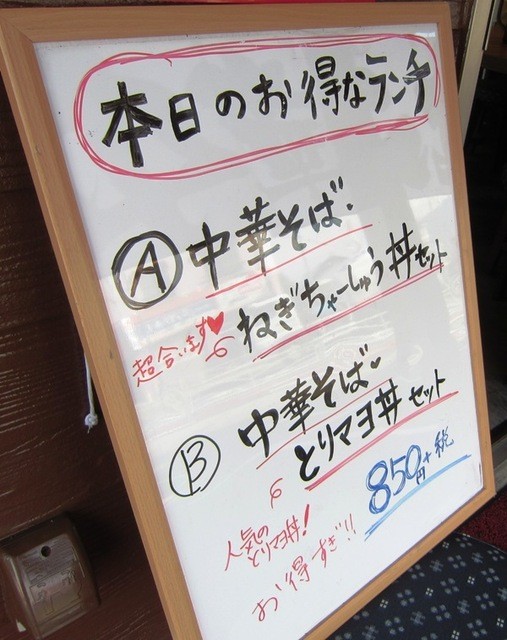 本日のお得なランチ
Ⓐ中華そば・
ねぎちゃーしゅう丼セット
超合います♥
Ⓑ中華そば・
とりマヨ丼セット
850円+税
人気の
とりマヨ丼!
お得すぎ!!